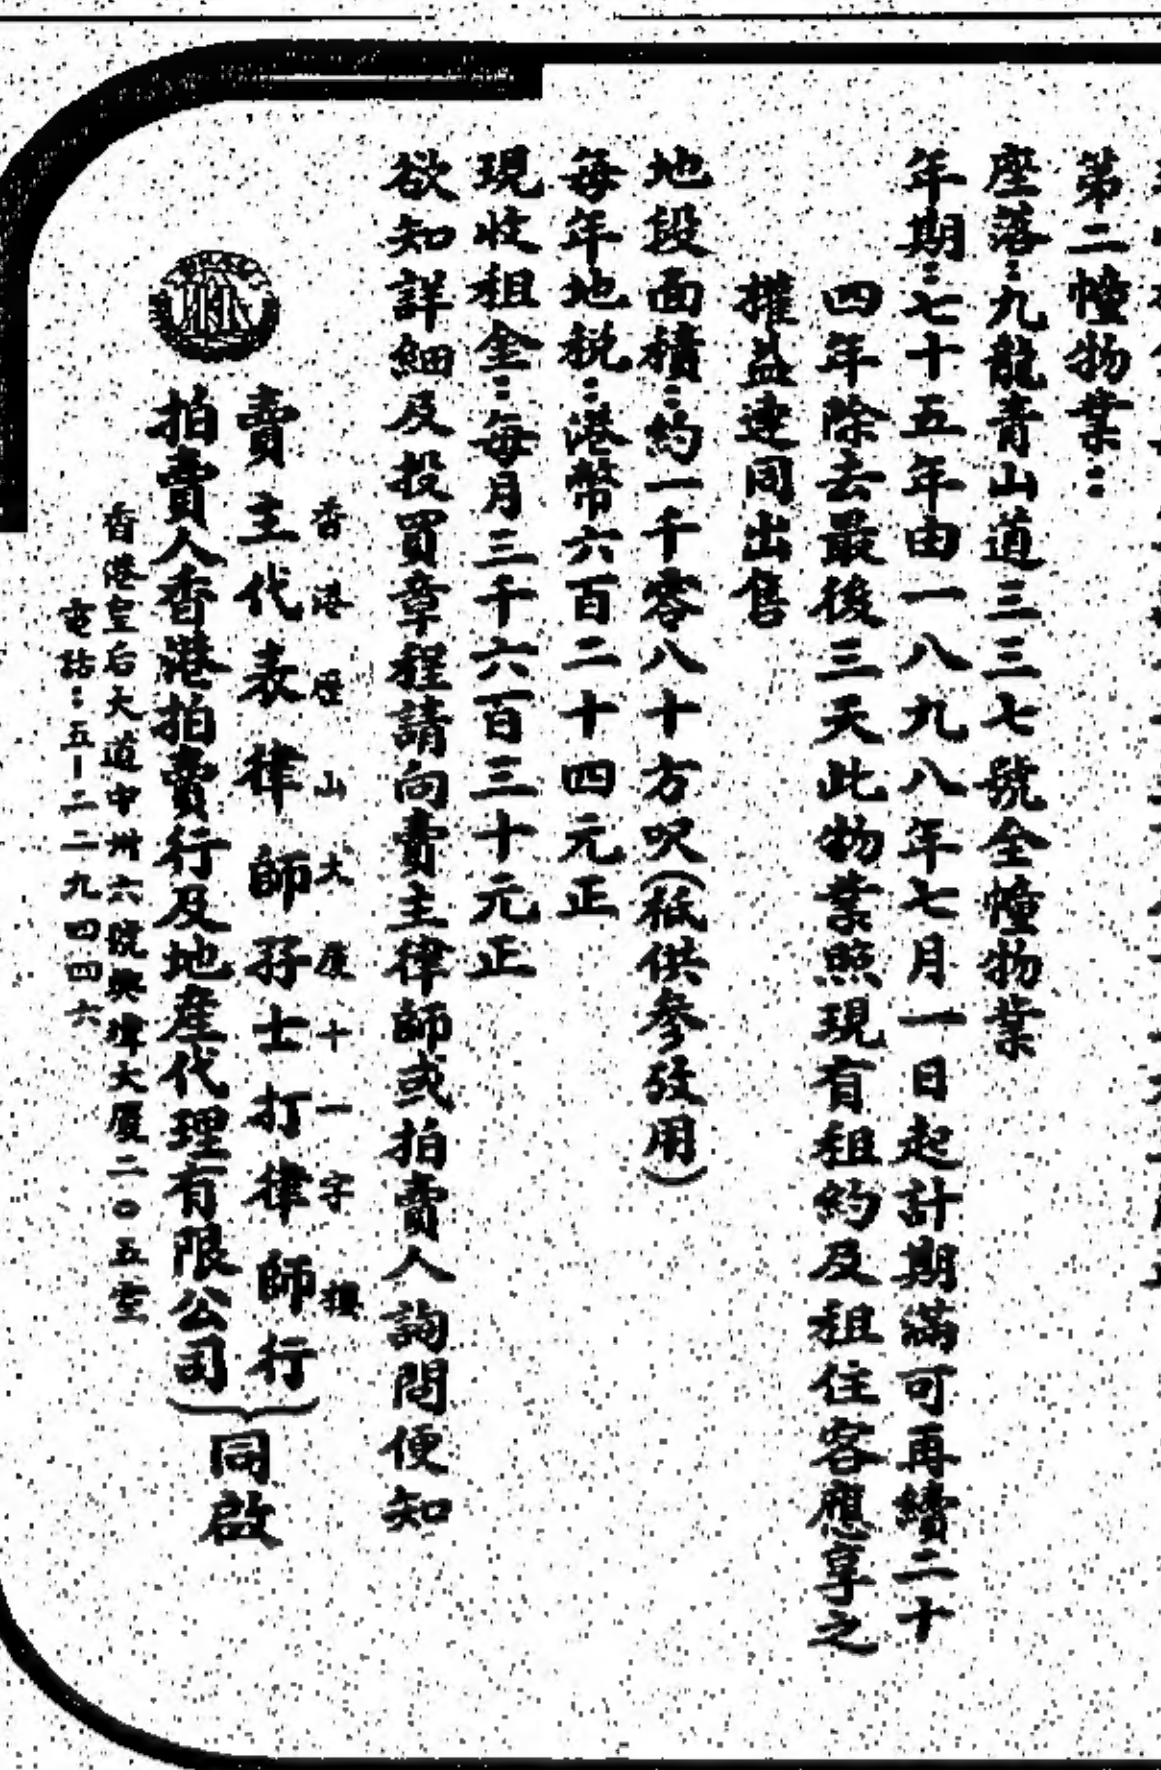 第二幢物業：
座落：九龍青山道三三七號全幢物業
年期：七十五年由一八九八年七月一日起計期滿可再續二十
四年除去最後三天此物業照現有租約及租住客應享之
權益連同出售
地段面積：約一千零八十方呎（祇供參攷用）
每年地税：港幣六百二十四元正
現收租金：每月三千六百三十元正
欲知詳細及投買章程請向賣主律師或拍賣人詢問便知
香港歷山大廈十一字樓
賣主代表律師孖士打律師行
拍賣人香港拍賣行及地產代理有限公司
同啟
香港皇后大道中卅六號興瑋大廈二〇五室
電話：五－二二九四四六